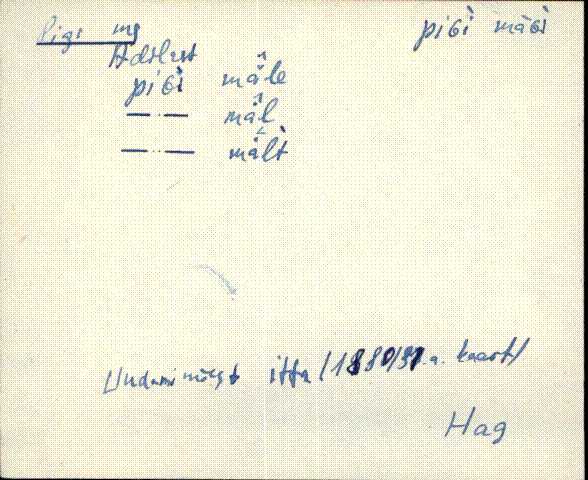 Pigi mg
piGi mäGi
Adsl.
piGi mä̂le
— · — mä̂l
— · — mält
Undamimõist itta /1880/81.a. kaart/
Hag